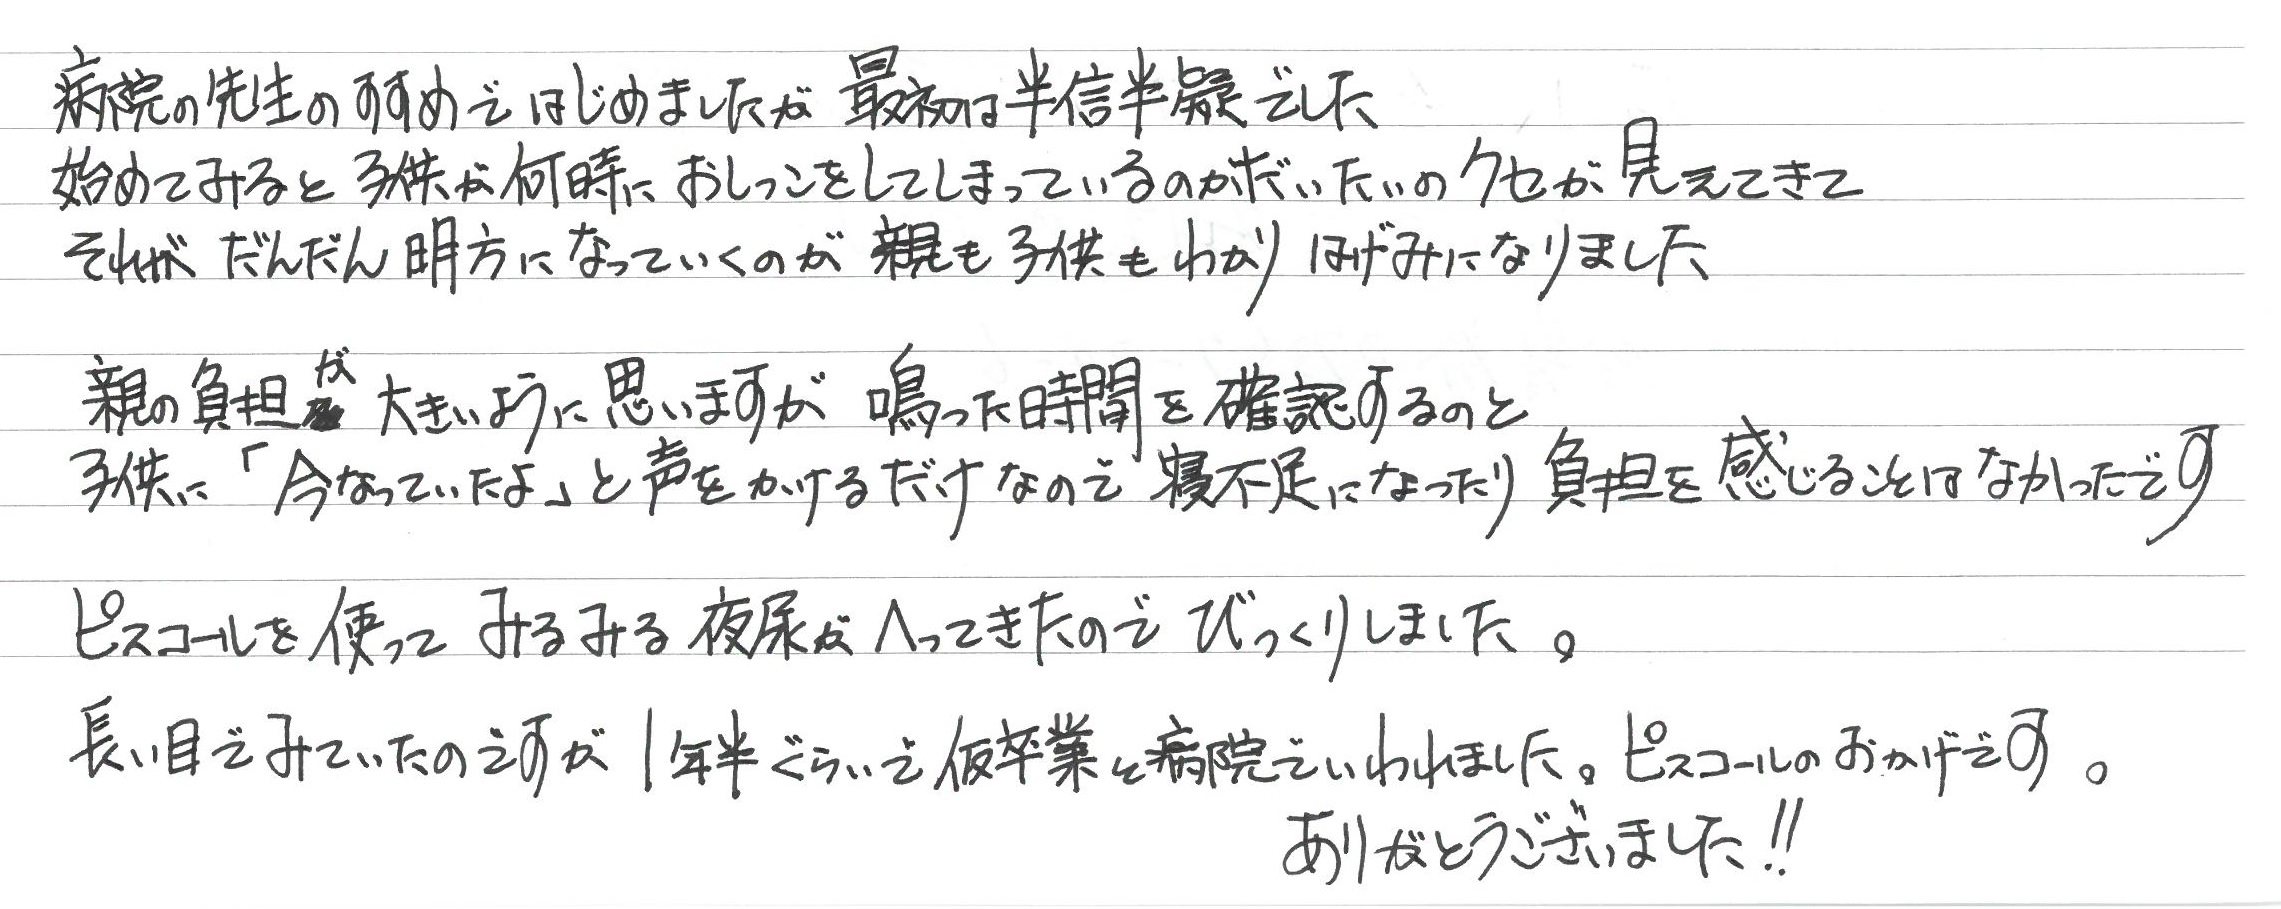 病院の先生のすすめではじめましたが 最初は半信半疑でした
始めてみると 子供が何時に おしっこをしてしまっているのかだいたいの クセが 見えてきて
それが だんだん 明方に なっていくのが 親も 子供も わかり はげみになりました
親の負担が 大きいように思いますが 鳴った時間を確認するのと
子供に「今なっていたよ」と声をかけるだけなので 寝不足になったり 負担を感じることはなかったです
ピスコールを使って みるみる 夜尿が へってきたので びっくりしました。
長い目でみていたのですが 1年半ぐらいで仮卒業と病院でいわれました。ピスコールのおかげです。
ありがとうございました!!